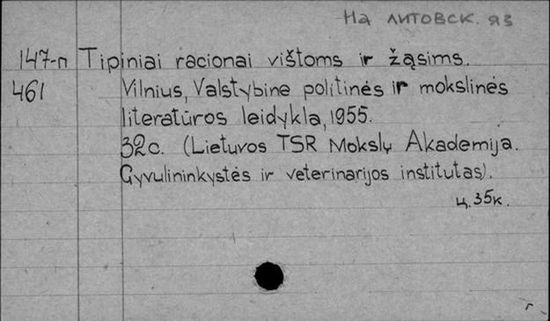 На литовск. яз
147-п Tipiniai racionai vištoms ir žąsims.
461 Vilnius, Valstybine politinės ir mokslinės
literatūros leidykla, 1955.
32с. (Lietuvos TSR Mokslų Akademija.
Gyvulininkystės ir veterinarijos institutas).
ц. 35к.
г